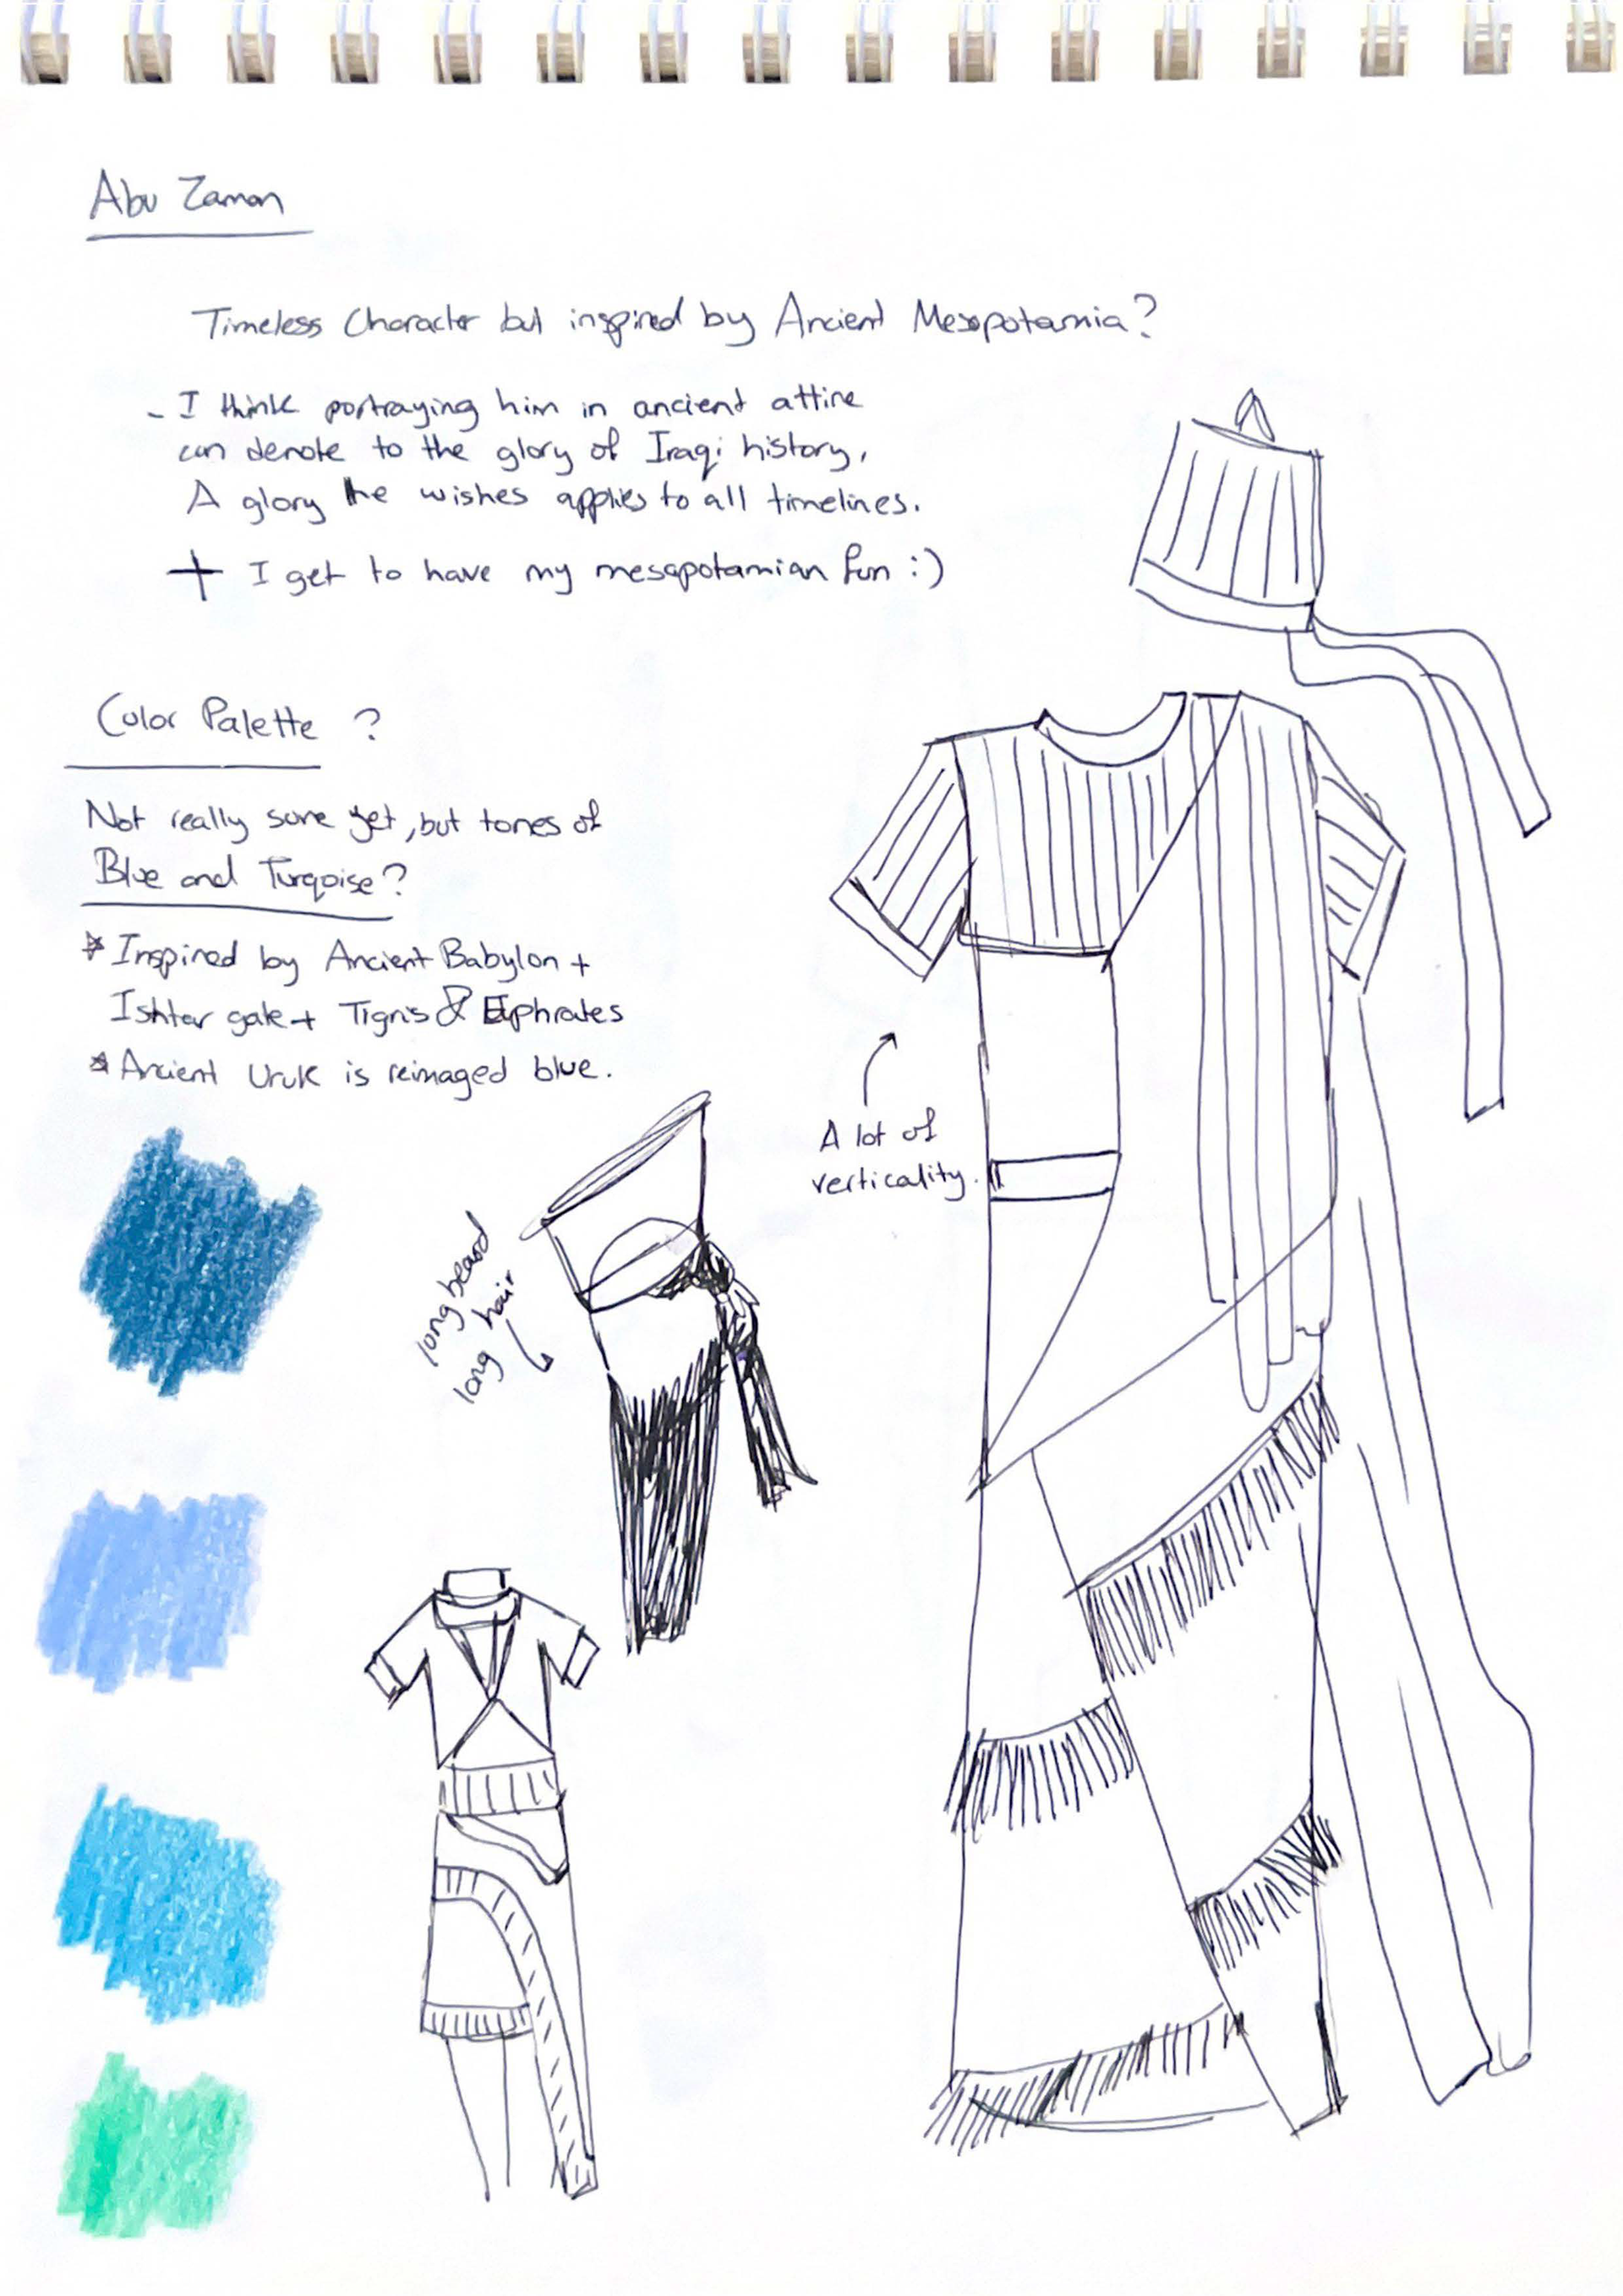 Abu Zaman
Timeless Character but inspired by Ancient Mesopotamia?
- I think portraying him in ancient attire
can denote to the glory of Iraqi history,
A glory he wishes applies to all timelines.
+ I get to have my mesopotamian fun :)
Color Palette ?
Not really sure yet, but tones of
Blue and Turqoise?
* Inspired by Ancient Babylon +
Ishtar gate + Tigris & Euphrates
* Ancient Uruk is reimaged blue.
A lot of
verticality.
long beard
long hair